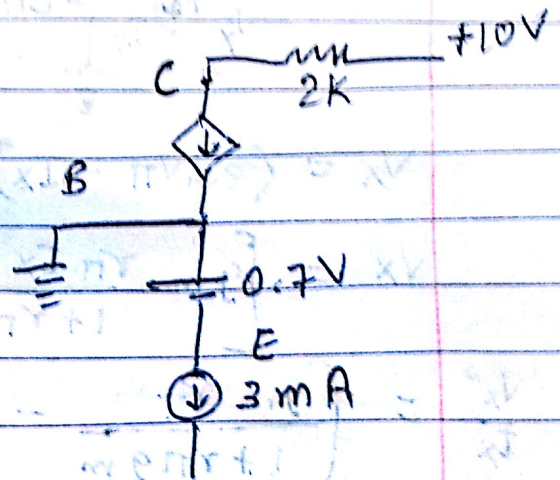 +10V
C
2K
B
0.7V
E
3mA